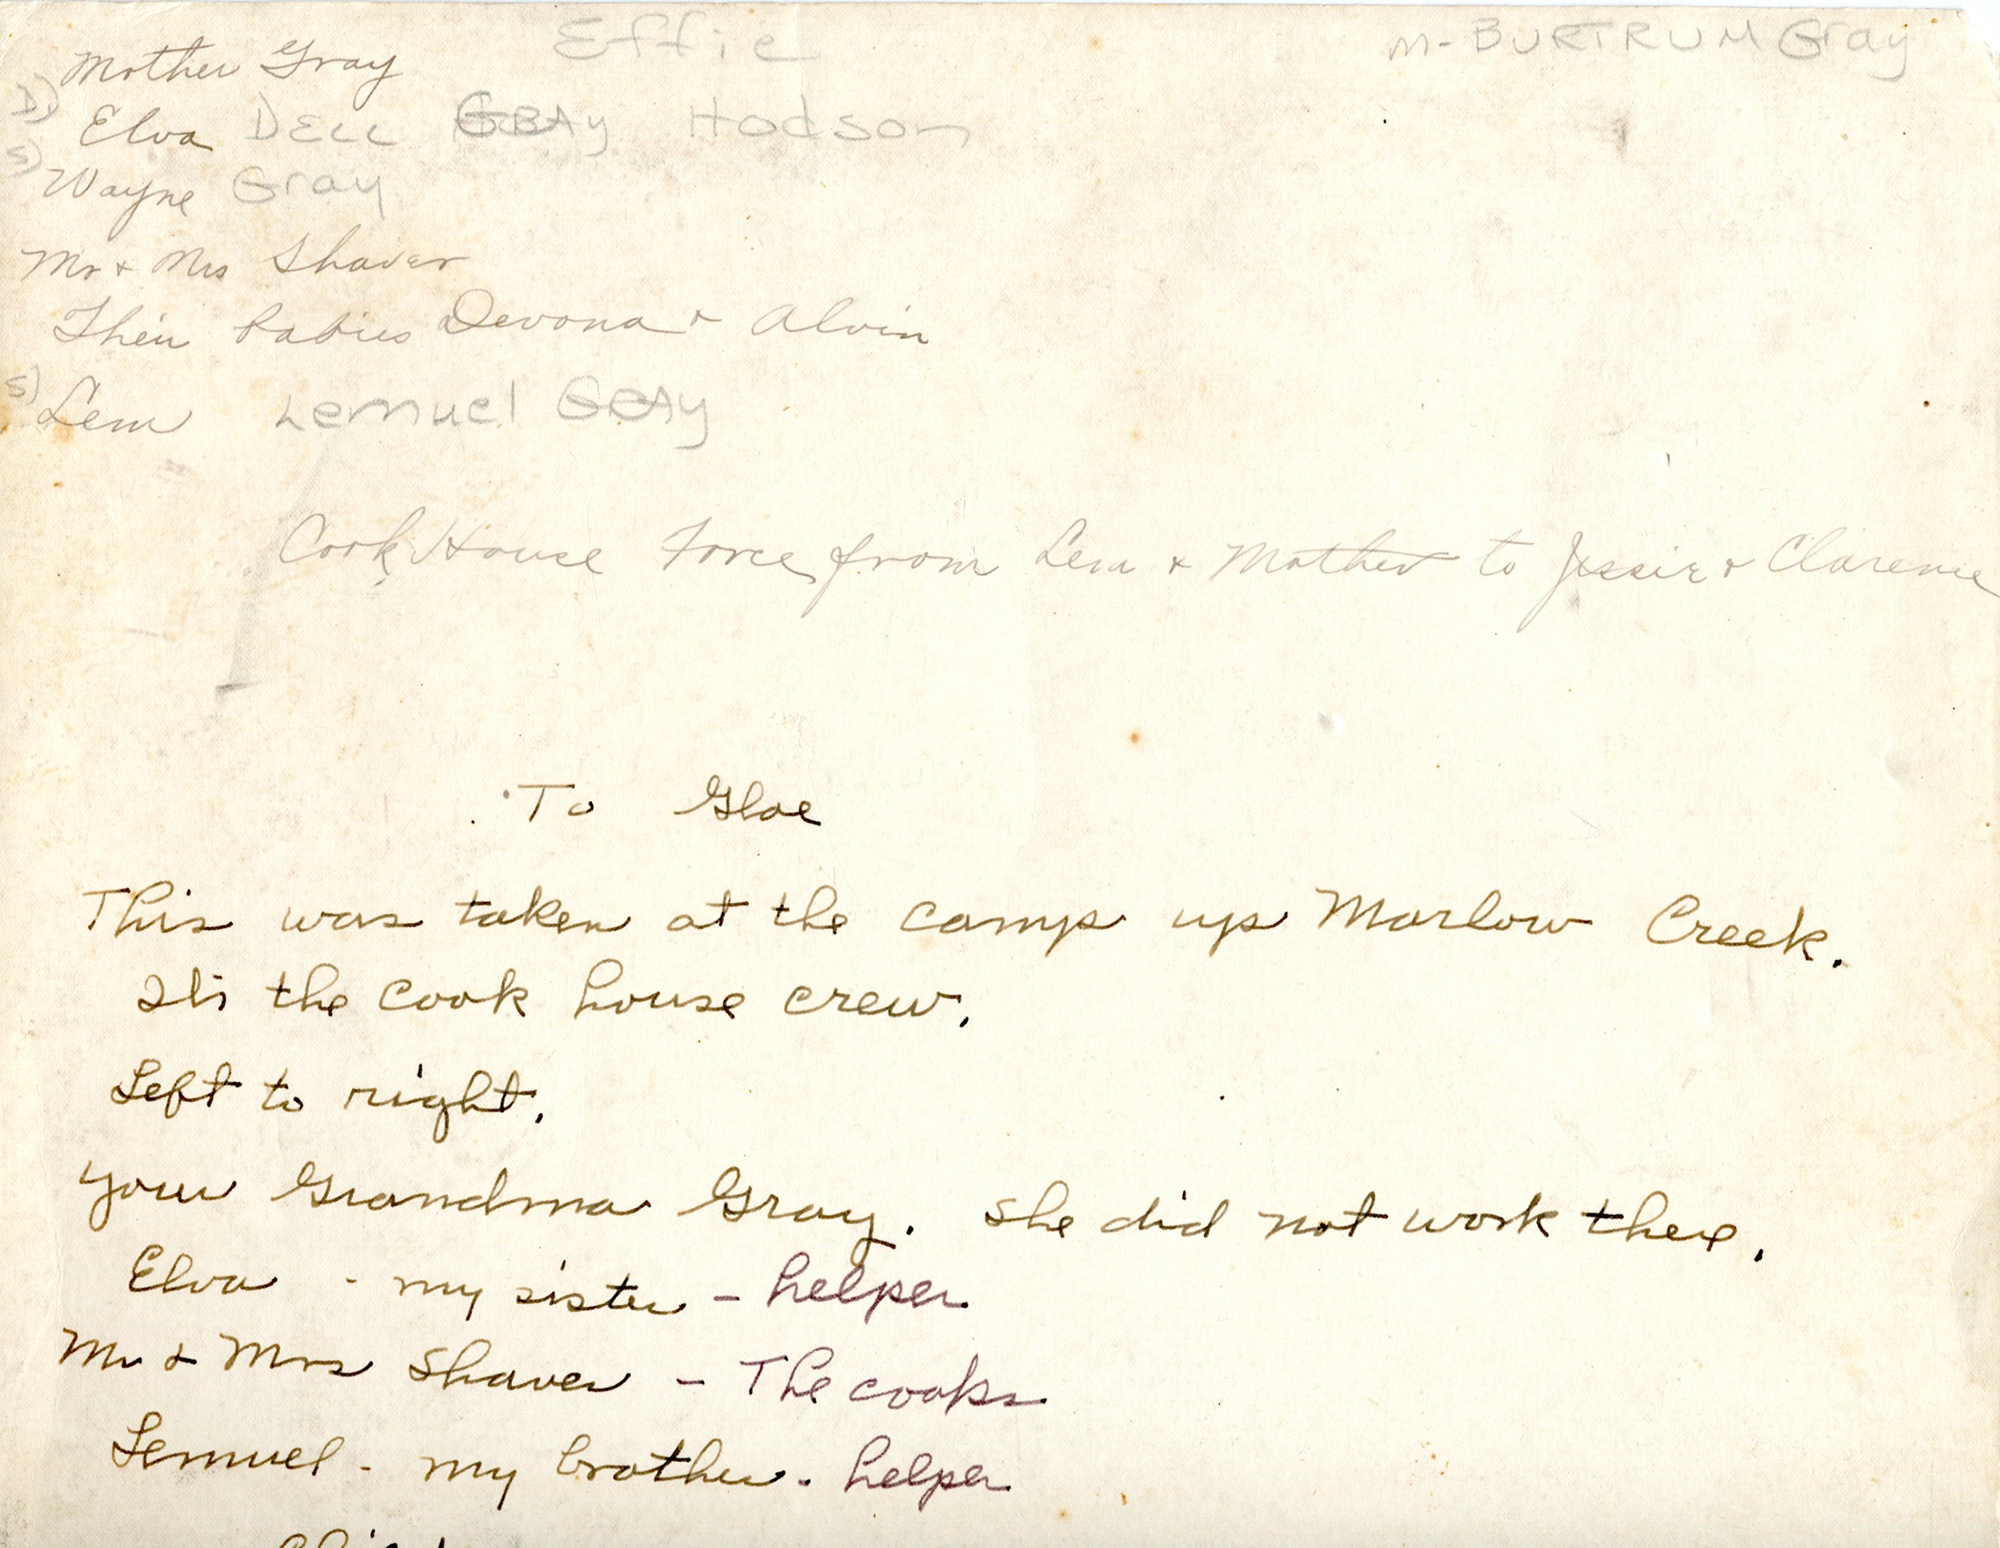 Mother Gray Effie M- BURTRUM Gray
D) Elva DELL GRAY Hodson
S) Wayne Gray
Mr + Mrs Shaver
Their babies Devona + Alvin
S) Lem Lemuel GRAY
Cook House Force from Lem + Mother to Jessie + Clarence
To Gloe
This was taken at the camp up Marlow Creek.
Its the cook house crew.
Left to right.
your Grandma Gray. She did not work there.
Elva - my sister - helper
Mr & Mrs Shaver - The cooks
Lemuel - my brother - helper